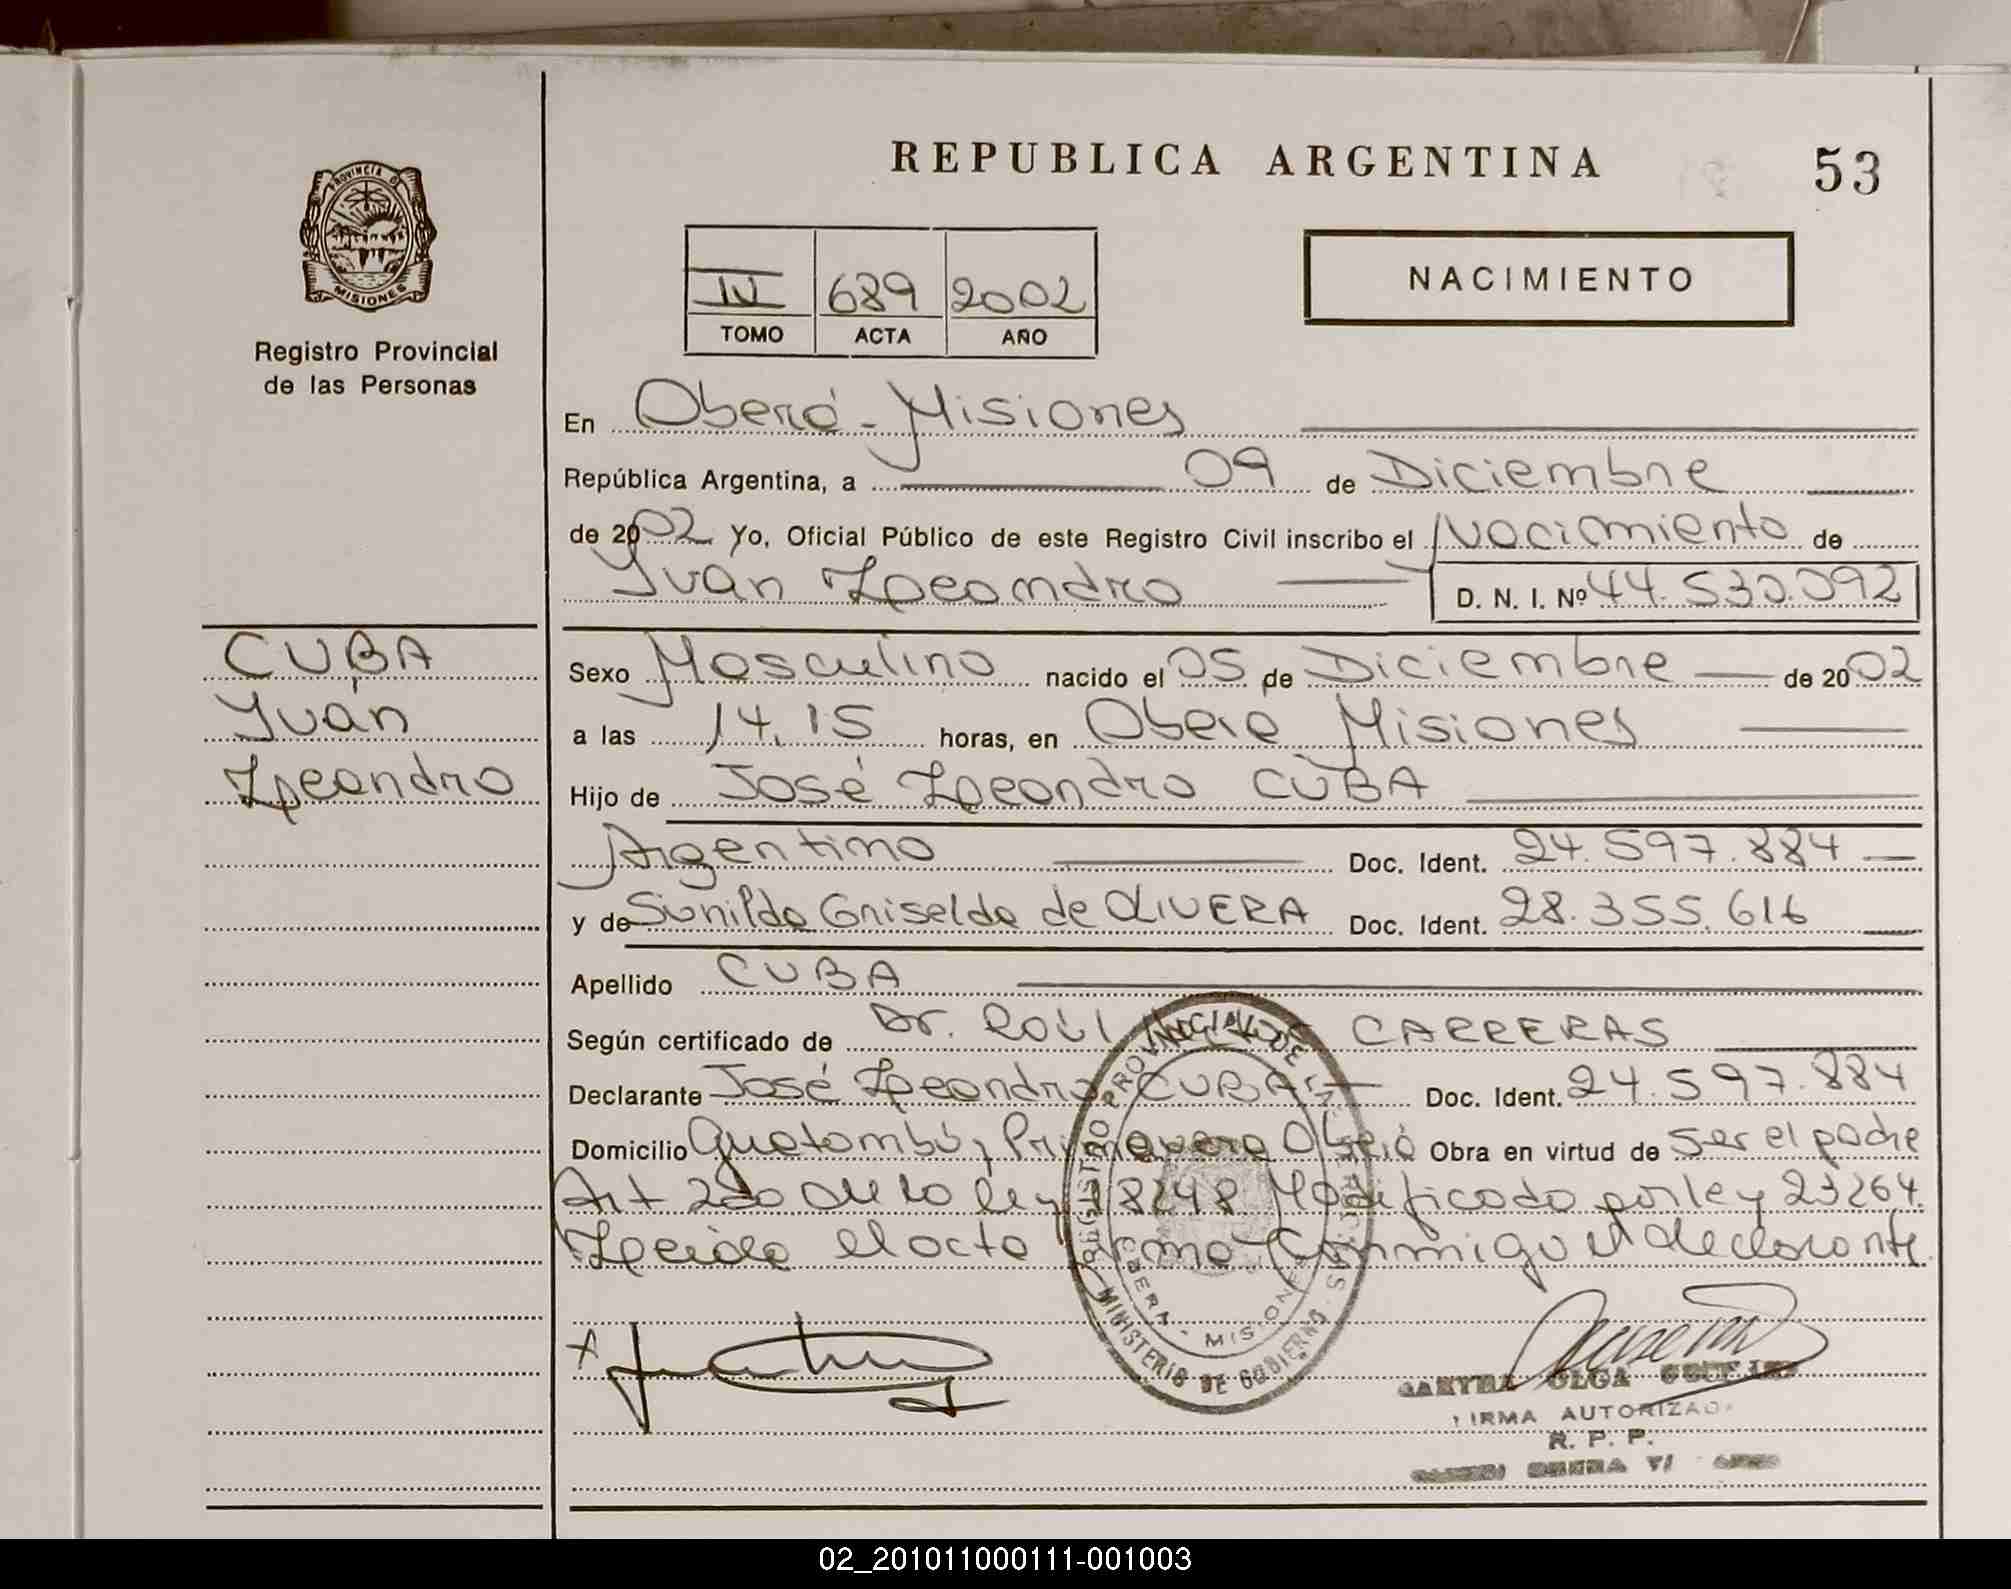 REPUBLICA ARGENTINA
53
PROVINCIA D
MISIONES
Registro Provincial
de las Personas
NACIMIENTO
IV 689 2002
TOMO ACTA AÑO
En Oberá - Misiones
República Argentina, a 09 de Diciembre
de 2002 Yo, Oficial Público de este Registro Civil inscribo el Nacimiento de
Iván Leandro D. N. I. Nº 44.530.092
CUBA
Iván
Leandro
Sexo Masculino nacido el 05 de Diciembre de 2002
a las 14.15 horas, en Oberá Misiones
Hijo de José Leandro CUBA
Argentino Doc. Ident. 24.597.884
y de Sunilda Griselda de OLIVERA Doc. Ident. 28.355.616
Apellido CUBA
Según certificado de Dr. Raúl CARRERAS
Declarante José Leandro CUBA Doc. Ident. 24.597.884
Domicilio Guatambú, Primavera Oberá Obra en virtud de ser el padre
Art 2do de la ley 18248 Modificado por ley 23264.
Leída el acta firma Conmigo el declarante
MINISTERIO DE GOBIERNO
OBERA - MISIONES
FIRMA AUTORIZADA
R. P. P.
02_201011000111-001003